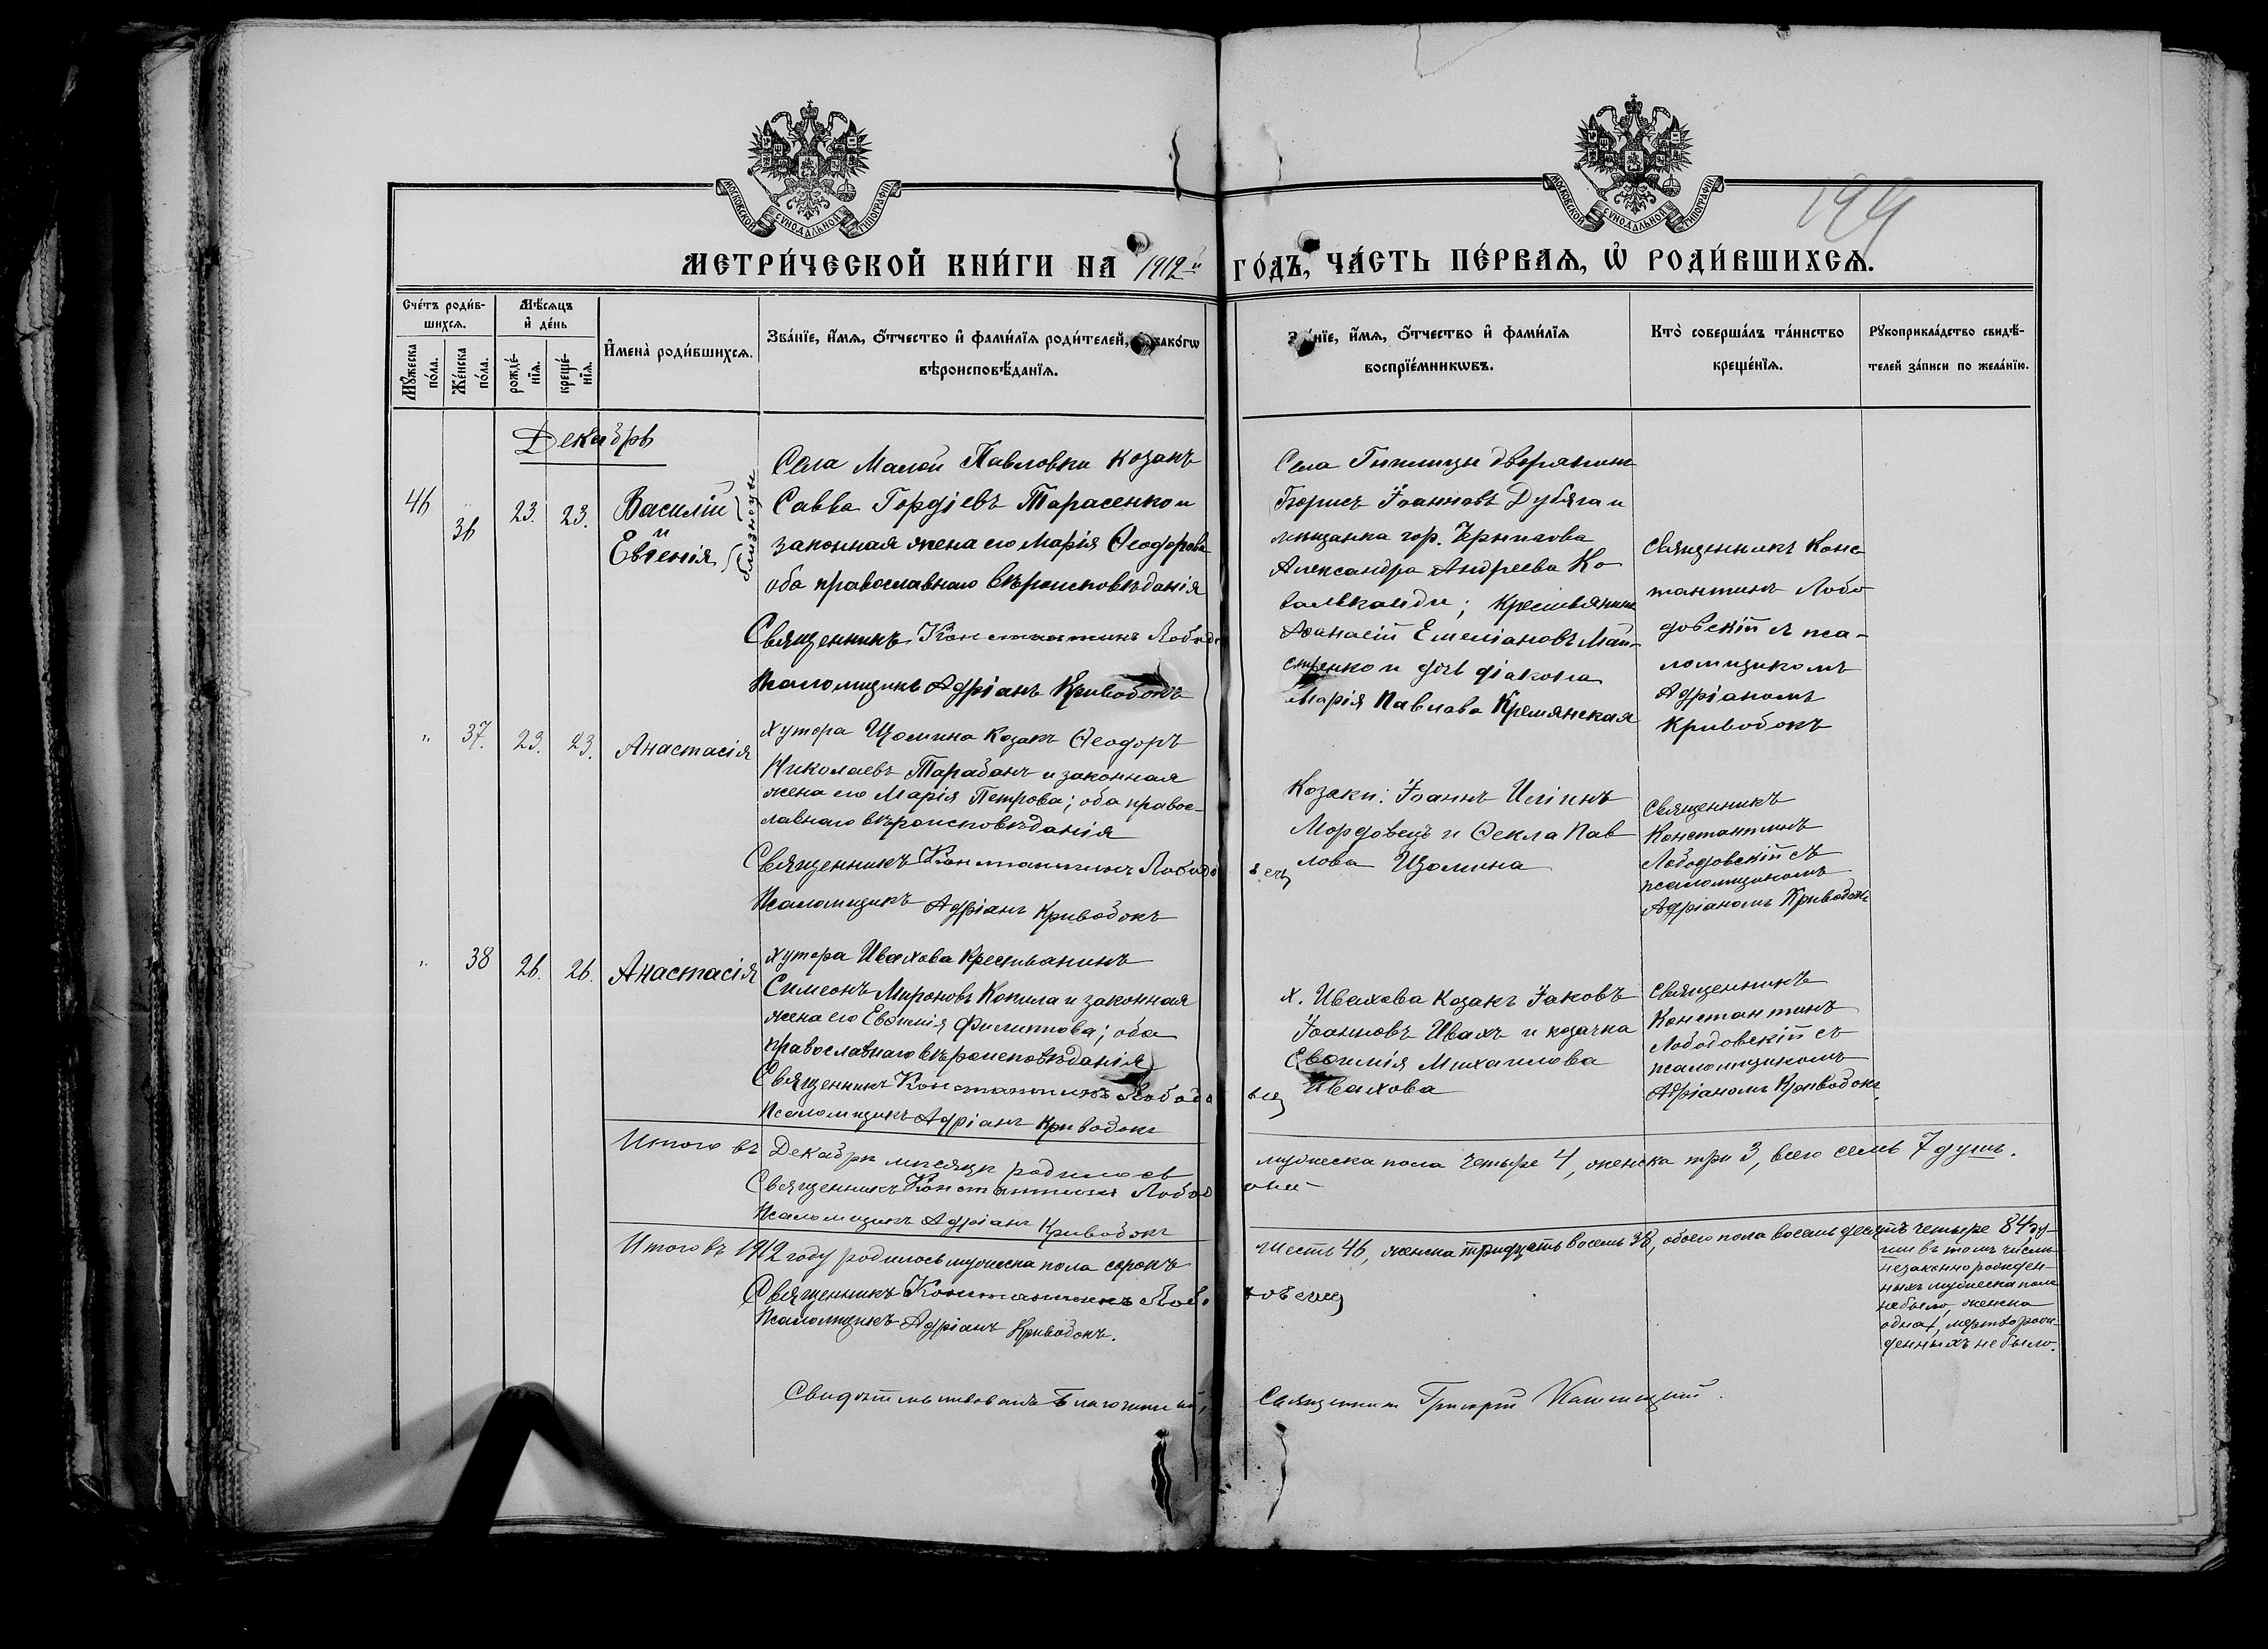 МОСКОВСКОЙ СѴНОДАЛЬНОЙ ТИПОГРАФІИ
МОСКОВСКОЙ СѴНОДАЛЬНОЙ ТИПОГРАФІИ
МЕТРИ́ЧЕСКОЙ КНИ́ГИ НА 1912й ГО́ДЪ, ЧА́СТЬ ПЕ́РВАѦ, Ѡ РОДИ́ВШИХСѦ.
Сче́тъ роди́в-
шихсѧ.
Мꙋ́жеска по́ла.
Же́нска по́ла.
Мѣ́сѧцъ
и де́нь
рожде́-
нїѧ.
креще́-
нїѧ.
Имена̀ роди́вшихсѧ.
Зва́нїе, и́мѧ, о́тчество и фами́лїѧ роди́телей, и како́гѡ
вѣроисповѣ́данїѧ.
Зва́нїе, и́мѧ, о́тчество и фами́лїѧ
воспрїе́мникѡвъ.
Кто̀ соверша́лъ та́инство
креще́нїѧ.
Рꙋкоприкла́дство свидѣ́-
телей за́писи по жела́нїю.
Декабрь
46
36
23.
23.
Василій
и
Евгенія
близнецы
Села Малой Павловки козакъ
Савва Гордіевъ Тарасенко и
законная жена его Марія Ѳеодорова
оба православнаго вѣроисповѣданія
Священникъ Константинъ Лободо
Псаломщикъ Адріанъ Кривобокъ
Села Гнилицы дворянинъ
Борисъ Іоанновъ Дубяга и
мѣщанка гор. Чернигова
Александра Андреева Ко
; крестьянинъ
Аѳанасій Емеліановъ
и дочь діакона
Марія Павлова Кремянская
Священникъ Конс
тантинъ Лобо
довскій съ пса-
ломщикомъ
Адріаномъ
Кривобокъ
"
37.
23.
23.
Анастасія
Хутора Щомина козакъ Ѳеодоръ
Николаевъ Тарабанъ и законная
жена его Марія Петрова; оба правос-
лавнаго вѣроисповѣданія
Священникъ Константинъ Лободо
Псаломщикъ Адріанъ Кривобокъ
Козаки: Іоаннъ Иліинъ
Мордовецъ и Ѳекла Пав
лова Щомина
Священникъ
Константинъ
Лободовскій съ
псаломщикомъ
Адріаномъ Кривобокъ
"
38
26.
26.
Анастасія
Хутора Ивахова крестьянинъ
Симеонъ Мироновъ Копила и законная
жена его Евѳимія Филиппова; оба
православнаго вѣроисповѣданія
Священникъ Константинъ Лободо
Псаломщикъ Адріанъ Кривобокъ
х. Ивахова козакъ Іаковъ
Іоанновъ Ивахъ и козачка
Евѳимія Михаилова
Ивахова
Священникъ
Константинъ
Лободовскій съ
псаломщикомъ
Адріаномъ Кривобокъ
Итого въ Декабрѣ мѣсяцѣ родилось мужеска пола четыре 4, женска три 3, всего семь 7 душъ.
Священникъ Константинъ Лободо
Псаломщикъ Адріанъ Кривобокъ
Итого въ 1912 году родилось мужеска пола сорокъ шесть 46, женска тридцать восемь 38, обоего пола восемьдесятъ четыре 84 ду-
ши въ томъ числѣ
незаконнорожден-
ныхъ мужеска пола
небыло, женска
одна 1, мертворож-
денныхъ небыло.
Священникъ Константинъ Лобо
Псаломщикъ Адріанъ Кривобокъ.
Свидѣтельствовалъ Благочинный, Священникъ Григорій